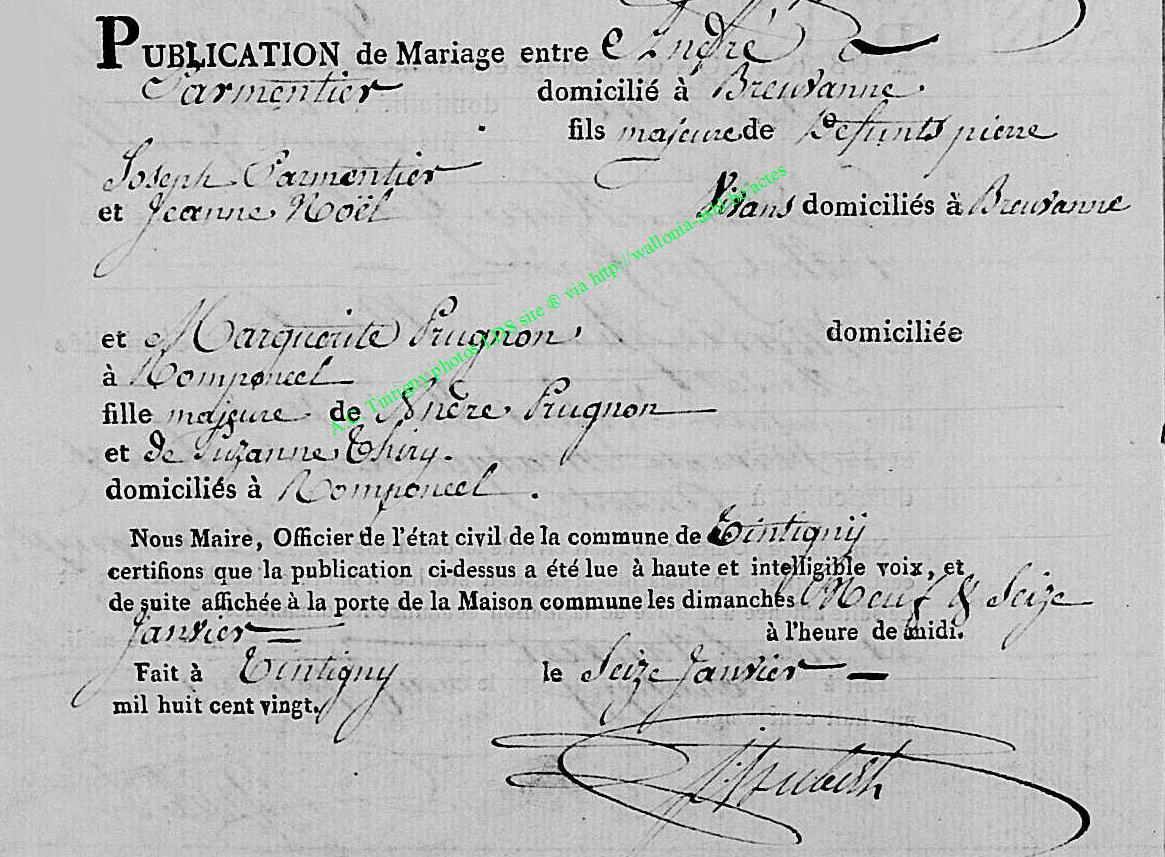 PUBLICATION de Mariage entre André
Parmentier domicilié à Breuvanne.
fils majeure de Defunts pierre
Joseph Parmentier
et Jeanne Noël Vivans domiciliés à Breuvanne
et Marguerite Prugnon domiciliée
à Romponcel
fille majeure de André Prugnon
et de Suzanne Thiry.
domiciliés à Romponcel.
Nous Maire, Officier de l'état civil de la commune de Tintigny
certifions que la publication ci-dessus a été lue à haute et intelligible voix, et
de suite affichée à la porte de la Maison commune les dimanches Neuf & Seize
Janvier à l'heure de midi.
Fait à Tintigny le Seize Janvier
mil huit cent vingt.
Tintigny photos LDS site ® via http://wallonia-asbl.be/actes